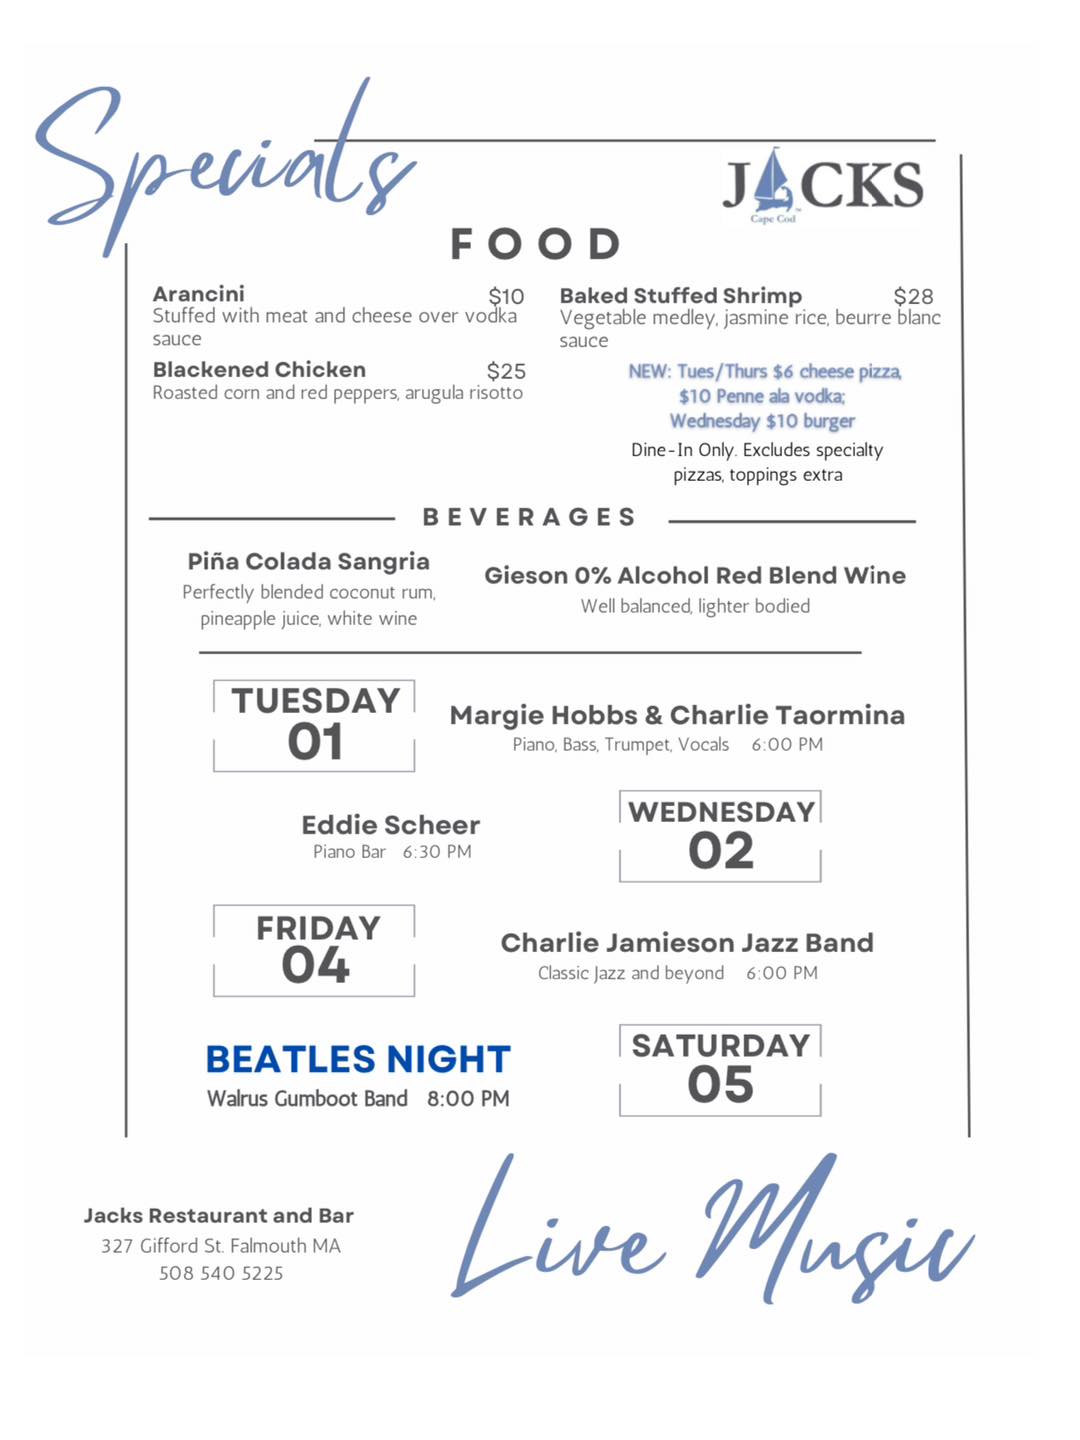 Specials
JACKS
Cape Cod
FOOD
Arancini $10
Stuffed with meat and cheese over vodka
sauce
Blackened Chicken $25
Roasted corn and red peppers, arugula risotto
Baked Stuffed Shrimp $28
Vegetable medley, jasmine rice, beurre blanc
sauce
NEW: Tues/Thurs $6 cheese pizza,
$10 Penne ala vodka;
Wednesday $10 burger
Dine-In Only. Excludes specialty
pizzas, toppings extra
BEVERAGES
Piña Colada Sangria
Perfectly blended coconut rum,
pineapple juice, white wine
Gieson 0% Alcohol Red Blend Wine
Well balanced, lighter bodied
TUESDAY
01
Margie Hobbs & Charlie Taormina
Piano, Bass, Trumpet, Vocals 6:00 PM
Eddie Scheer
Piano Bar 6:30 PM
WEDNESDAY
02
FRIDAY
04
Charlie Jamieson Jazz Band
Classic Jazz and beyond 6:00 PM
BEATLES NIGHT
Walrus Gumboot Band 8:00 PM
SATURDAY
05
Jacks Restaurant and Bar
327 Gifford St. Falmouth MA
508 540 5225
Live Music